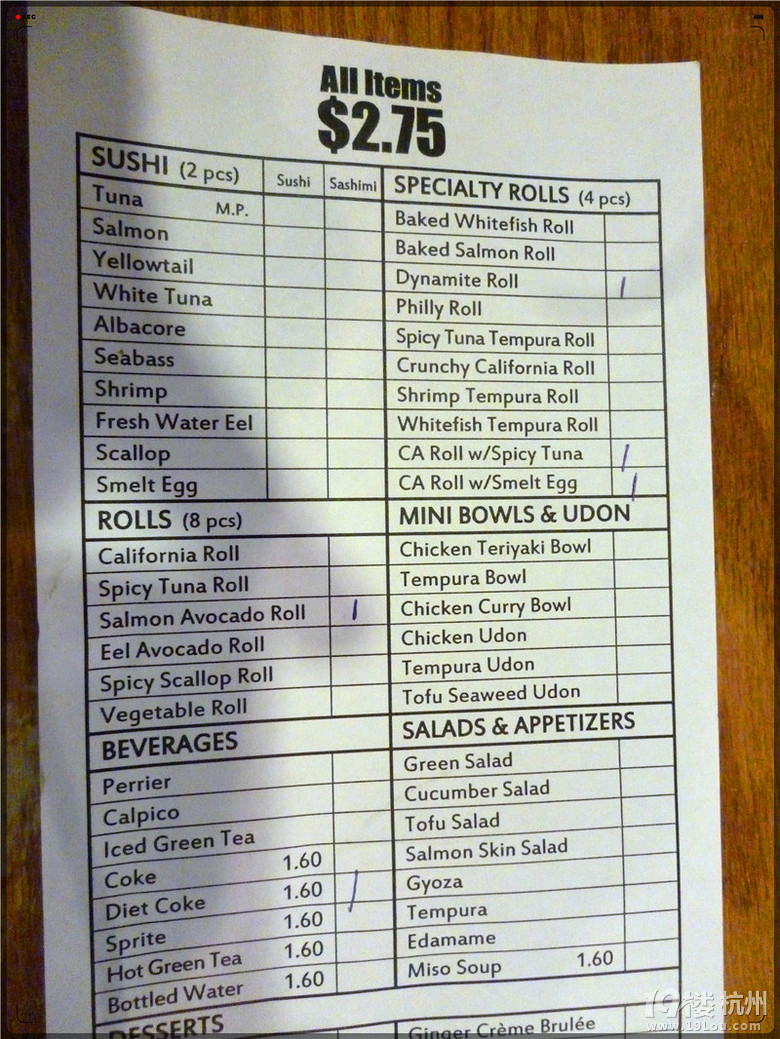 REC
All Items
$2.75
SUSHI (2 pcs) Sushi Sashimi
Tuna M.P.
Salmon
Yellowtail
White Tuna
Albacore
Seabass
Shrimp
Fresh Water Eel
Scallop
Smelt Egg
ROLLS (8 pcs)
California Roll
Spicy Tuna Roll
Salmon Avocado Roll
Eel Avocado Roll
Spicy Scallop Roll
Vegetable Roll
BEVERAGES
Perrier
Calpico
Iced Green Tea
Coke 1.60
Diet Coke 1.60
Sprite 1.60
Hot Green Tea 1.60
Bottled Water 1.60
DESSERTS
SPECIALTY ROLLS (4 pcs)
Baked Whitefish Roll
Baked Salmon Roll
Dynamite Roll
Philly Roll
Spicy Tuna Tempura Roll
Crunchy California Roll
Shrimp Tempura Roll
Whitefish Tempura Roll
CA Roll w/Spicy Tuna
CA Roll w/Smelt Egg
MINI BOWLS & UDON
Chicken Teriyaki Bowl
Tempura Bowl
Chicken Curry Bowl
Chicken Udon
Tempura Udon
Tofu Seaweed Udon
SALADS & APPETIZERS
Green Salad
Cucumber Salad
Tofu Salad
Salmon Skin Salad
Gyoza
Tempura
Edamame
Miso Soup 1.60
Ginger Crème Brulée
19楼杭州
www.19lou.com